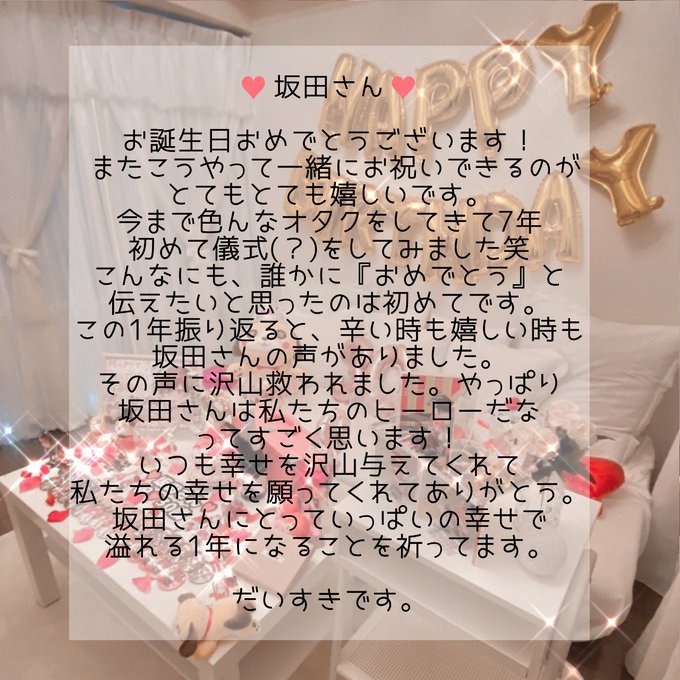 HAPPY
BIRTHDAY
♥ 坂田さん ♥
お誕生日おめでとうございます！
またこうやって一緒にお祝いできるのが
とてもとても嬉しいです。
今まで色んなオタクをしてきて7年
初めて儀式(？)をしてみました笑
こんなにも、誰かに『おめでとう』と
伝えたいと思ったのは初めてです。
この1年振り返ると、辛い時も嬉しい時も
坂田さんの声がありました。
その声に沢山救われました。やっぱり
坂田さんは私たちのヒーローだな
ってすごく思います！
いつも幸せを沢山与えてくれて
私たちの幸せを願ってくれてありがとう。
坂田さんにとっていっぱいの幸せで
溢れる1年になることを祈ってます。
だいすきです。